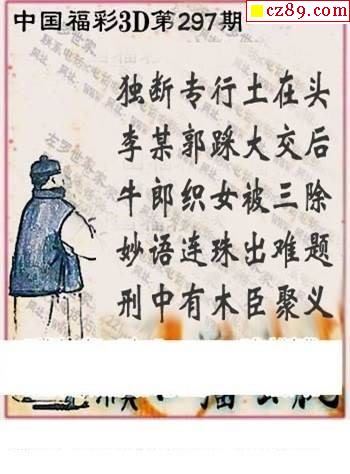 cz89.com
中国福彩3D第297期
独断专行土在头
李某郭踩大交后
牛郎织女被三除
妙语连珠出难题
刑中有木臣聚义